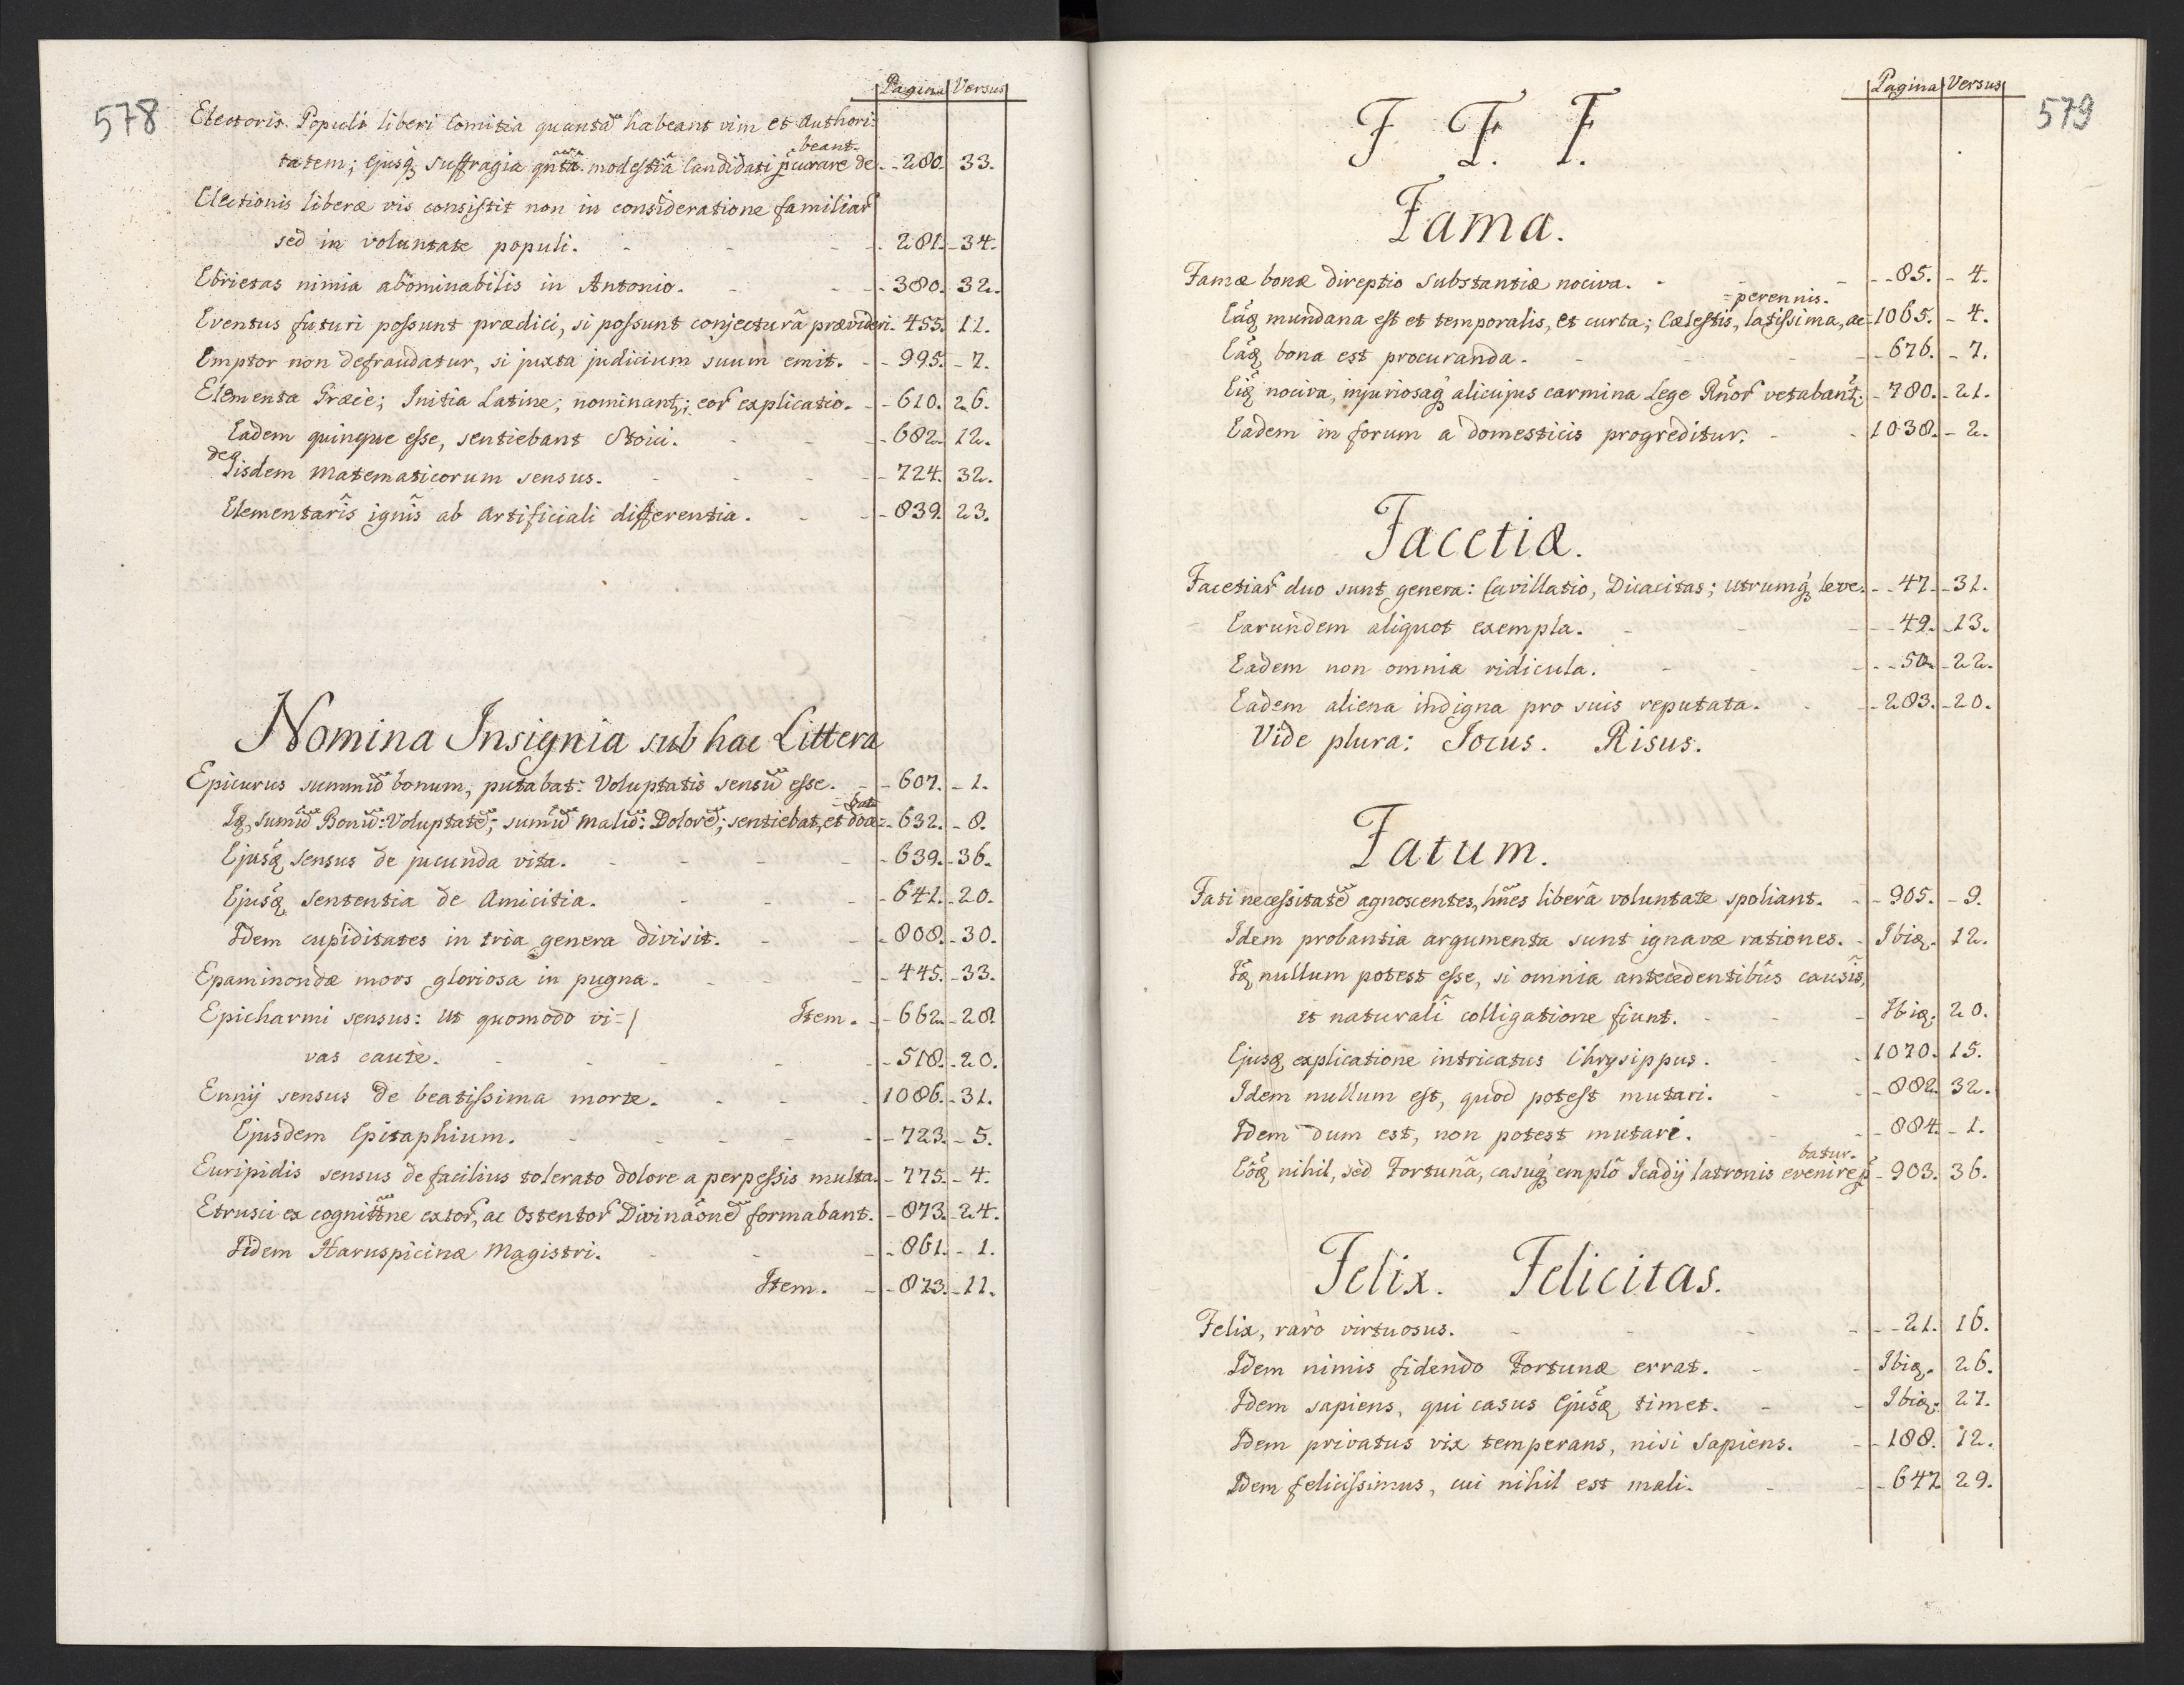 578
Pagina Versus
Electoris Populi liberi Comitia quantã habeant vim et Authori=
tatem; Ejusq suffragia qntã modestiã Candidati pcurare de=beant. 280. 33.
Electionis liberæ vis consistit non in consideratione familiar
sed in voluntate populi. 281. 34.
Ebrietas nimia abominabilis in Antonio. 380. 32.
Eventus futuri possunt prædici, si possunt conjecturâ prævideri. 455. 11.
Emptor non defraudatur, si juxta judicium suum emit. 995. 7.
Elementa Græcè; Initia Latine; nominant; eor explicatio. 610. 26.
Eadem quinque esse, sentiebant Stoici. 682. 12.
de Iisdem Matematicorum sensus. 724. 32.
Elementaris ignis ab Artificiali differentia. 839. 23.
Nomina Insignia sub hac Littera
Epicurus summũ bonum, putabat: Voluptatis sensũ esse. 607. 1.
Iq, sumũ Bonũ: Voluptatẽ; sumũ malũ: Dolorẽ; sentiebat, et doce=bat 632. 8.
Ejusq sensus de jucunda vita. 639. 36.
Ejusq sententia de Amicitia. 641. 20.
Idem cupiditates in tria genera divisit. 808. 30.
Epaminondæ mors gloriosa in pugna. 445. 33.
Epicharmi sensus: Ut quomodo vi= / Item. 662. 28.
vas cautè. 518. 20.
Ennij sensus de beatissima morte. 1086. 31.
Ejusdem Epitaphium. 723. 5.
Euripidis sensus de facilius tolerato dolore a perpessis multa. 775. 4.
Etrusci ex cognittne extor, ac Ostentor Divinaõnẽ formabant. 873. 24.
Iidem Haruspicinæ Magistri. 861. 1.
Item. 873. 11.
579
Pagina Versus
F F. F.
Fama.
Famæ bonæ direptio substantiæ nociva. 85. 4.
Eãq mundana est et temporalis, et curta; Cælestis, latissima, ac =perennis. 1065. 4.
Eãq bona est procuranda. 676. 7.
Eiq nociva, injuriosaq alicujus carmina Lege Rnor vetabant. 780. 21.
Eadem in forum a domesticis progreditur. 1038. 2.
Facetiæ.
Facetiar duo sunt genera: Cavillatio, Dicacitas; utrumq leve. 47. 31.
Earundem aliquot exempla. 49. 13.
Eadem non omnia ridicula. 50. 22.
Eadem aliena indigna pro suis reputata. 283. 20.
Vide plura: Jocus. Risus.
Fatum.
Fati necessitatẽ agnoscentes, hñes liberâ voluntate spoliant. 905. 9.
Idem probantia argumenta sunt ignavæ rationes. Ibiq. 12.
Iq nullum potest esse, si omnia antecedentibus causis,
et naturali colligatione fiunt. Ibiq. 20.
Ejusq explicatione intricatus Chrysippus. 1020. 15.
Idem nullum est, quod potest mutari. 882. 32.
Idem dum est, non potest mutari. 884. 1.
Eõq nihil, sed Fortunâ, casuq emplõ Icadij latronis evenire pbatur. 903. 36.
Felix. Felicitas.
Felix, rarò virtuosus. 21. 16.
Idem nimis fidendo Fortunæ errat. Ibiq. 26.
Idem sapiens, qui casus Ejusq timet. Ibiq. 27.
Idem privatus vix temperans, nisi Sapiens. 188. 12.
Idem felicissimus, cui nihil est mali. 647. 29.